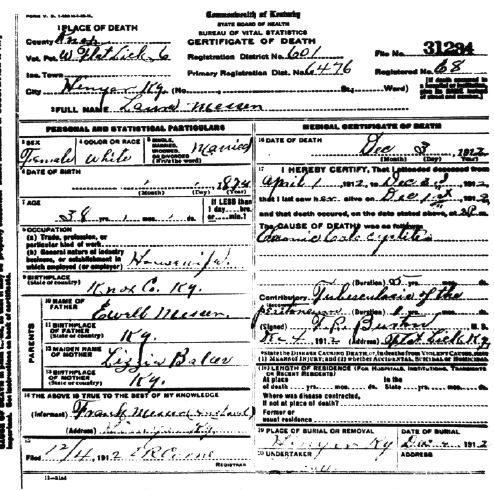 Commonwealth of Kentucky
STATE BOARD OF HEALTH
BUREAU OF VITAL STATISTICS
CERTIFICATE OF DEATH
1 PLACE OF DEATH
County Knox
Vot. Pct. W Flat Lick 6
Registration District No. 601
File No. 31234
Inc. Town
Primary Registration Dist. No. 6476
Registered No. 68
City Ky. (No. St.; Ward)
2 FULL NAME Laura Messer
PERSONAL AND STATISTICAL PARTICULARS
3 SEX Female
4 COLOR OR RACE White
5 SINGLE, MARRIED, WIDOWED, OR DIVORCED (Write the word) Married
6 DATE OF BIRTH
1874
(Month) (Day) (Year)
7 AGE
38 yrs. mos. ds.
If LESS than 1 day, hrs. or min.?
8 OCCUPATION
(a) Trade, profession, or particular kind of work
(b) General nature of industry business, or establishment in which employed (or employer) Housewife
9 BIRTHPLACE
(State or country) Knox Co. Ky.
PARENTS
10 NAME OF FATHER Ewell Messer
11 BIRTHPLACE OF FATHER
(State or country) Ky.
12 MAIDEN NAME OF MOTHER Lizzie Baker
13 BIRTHPLACE OF MOTHER
(State or country) Ky.
14 THE ABOVE IS TRUE TO THE BEST OF MY KNOWLEDGE
(Informant) Frank Messer
(Address) Ky.
15
Filed 12/4, 1912
REGISTRAR
MEDICAL CERTIFICATE OF DEATH
16 DATE OF DEATH
Dec 3, 1912
(Month) (Day) (Year)
17 I HEREBY CERTIFY, That I attended deceased from
April 1, 1912, to Dec 3d, 1912
that I last saw her alive on Dec 1st, 1912
and that death occurred, on the date stated above, at
The CAUSE OF DEATH was as follows:
Chronic
(Duration) yrs. mos. ds.
Contributory Tuberculosis of the
peritoneum (Duration) yrs. mos. ds.
(Signed) M. D.
1912 (Address) Flat Lick Ky.
18 LENGTH OF RESIDENCE (FOR HOSPITALS, INSTITUTIONS, TRANSIENTS OR RECENT RESIDENTS)
At place of death yrs. mos. ds. In the State yrs. mos. ds.
Where was disease contracted, if not at place of death?
Former or usual residence
19 PLACE OF BURIAL OR REMOVAL
Ky
DATE OF BURIAL
Dec 1912
20 UNDERTAKER
ADDRESS